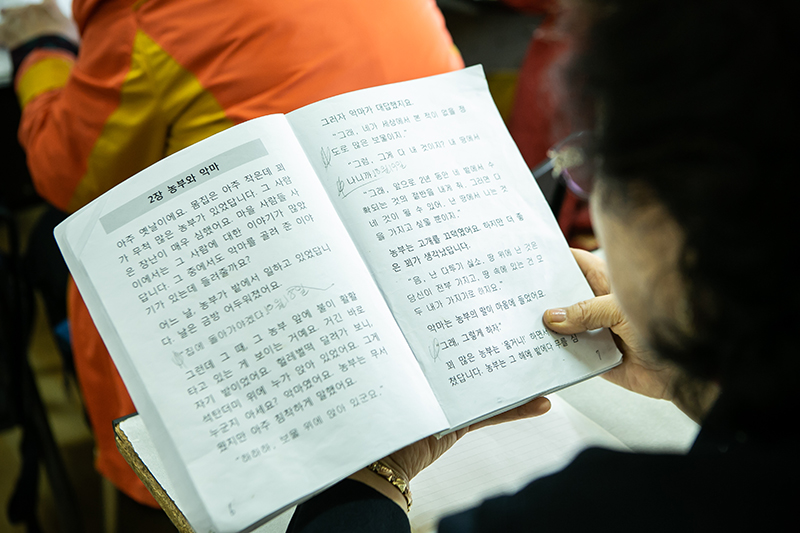 2장 농부와 악마
아주 옛날이에요. 몸집은 아주 작은데 꾀
가 무척 많은 농부가 있었답니다. 그 사람
은 장난이 매우 심했어요. 마을 사람들 사
이에서는 그 사람에 대한 이야기가 많았
답니다. 그 중에서도 악마를 골려 준 이야
기가 있는데 들려줄까요?
어느 날, 농부가 밭에서 일하고 있었답니
다. 날은 금방 어두워졌어요.
집에 돌아가야겠다
그런데 그 때, 그 농부 앞에 불이 활활
타고 있는 게 보이는 거예요. 거긴 바로
자기 밭이었어요. 헐레벌떡 달려가 보니,
석탄더미 위에 누가 앉아 있었어요. 그게
누군지 아세요? 악마였어요. 농부는 무서
웠지만 아주 침착하게 말했어요.
"하하하, 보물 위에 앉아 있군요."
6
그러자 악마가 대답했지요.
"그래, 네가 세상에서 본 적이 없을 정
도로 많은 보물이지."
"그럼, 그게 다 내 것이지? 내 땅에서
나니까
"그래, 앞으로 2년 동안 네 밭에서 수
확되는 것의 절반을 내게 줘. 그러면 다
네 것이 될 수 있어, 난 땅에서 나는 것
을 가지고 싶을 뿐이지."
농부는 고개를 끄덕였어요. 하지만 더 좋
은 꾀가 생각났답니다.
"음, 난 다투기 싫소. 땅 위에 난 것은
당신이 전부 가지고, 땅 속에 있는 건 모
두 내가 가지기로 하지요."
악마는 농부의 말이 마음에 들었어요.
"그래, 그렇게 하자"
꾀 많은 농부는 '옳거니' 하면서
졌답니다. 농부는 그 해에 밭에다 무를 심
7